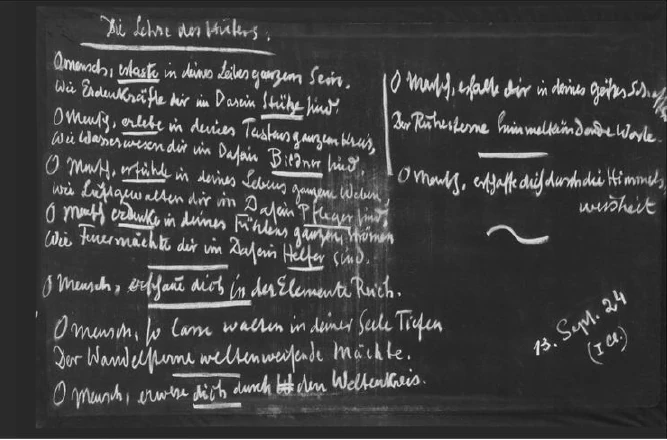 Die Lehre des Hüters.
O Mensch, ertaste in deines Leibes ganzem Sein,
Wie Erdenkräfte dir im Dasein Stütze sind.
O Mensch, erlebe in deines Tastens ganzem Kreis,
Wie Wasserwesen dir im Dasein Bildner sind.
O Mensch, erfühle in deines Lebens ganzem Weben,
Wie Luftgewalten dir im Dasein Pfleger sind,
O Mensch erdenke in deines Fühlens ganzem Strömen
Wie Feuermächte dir im Dasein Helfer sind.
O Mensch, erschaue dich in der Elemente Reich.
O Mensch, so lasse walten in deiner Seele Tiefen
Der Wandelsterne weltenweisende Mächte.
O Mensch, erwese dich durch den Weltenkreis.
O Mensch, erhalte dir in deines Geistes
Der Ruhesterne himmelkündende Worte.
O Mensch, erschaffe dich durch die Himmels
weisheit
13. Sept. 24
(I Cl.)